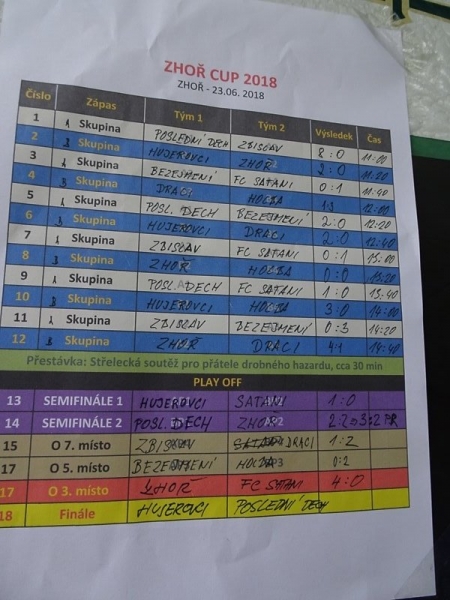 ZHOŘ CUP 2018
ZHOŘ - 23.06. 2018
Číslo Zápas Tým 1 Tým 2 Výsledek Čas
1 A Skupina POSLEDNÍ DECH ZBISLAV 8:0 11:00
2 B Skupina HUJEROVCI ZHOŘ 2:0 11:20
3 A Skupina BEZEJMENÍ FC SATANI 0:1 11:40
4 B Skupina DRACI HOLBA 1:3 12:00
5 A Skupina POSL. DECH BEZEJMENÍ 2:0 12:20
6 B Skupina HUJEROVCI DRACI 2:0 12:40
7 A Skupina ZBISLAV FC SATANI 0:1
8 B Skupina ZHOŘ HOLBA 0:0
9 A Skupina POSL. DECH FC SATANI 1:0
10 B Skupina HUJEROVCI HOLBA 3:0 14:00
11 A Skupina ZBISLAV BEZEJMENÍ 0:3 14:20
12 B Skupina ZHOŘ DRACI 4:1 14:40
Přestávka: Střelecká soutěž pro přátele drobného hazardu, cca 30 min
PLAY OFF
13 SEMIFINÁLE 1 HUJEROVCI SATANI 1:0
14 SEMIFINÁLE 2 POSL. DECH ZHOŘ
15 O 7. místo ZBISLAV DRACI 1:2
17 O 5. místo BEZEJMENÍ HOLBA 0:2
17 O 3. místo ZHOŘ FC SATANI 4:0
18 Finále HUJEROVCI POSLEDNÍ DECH